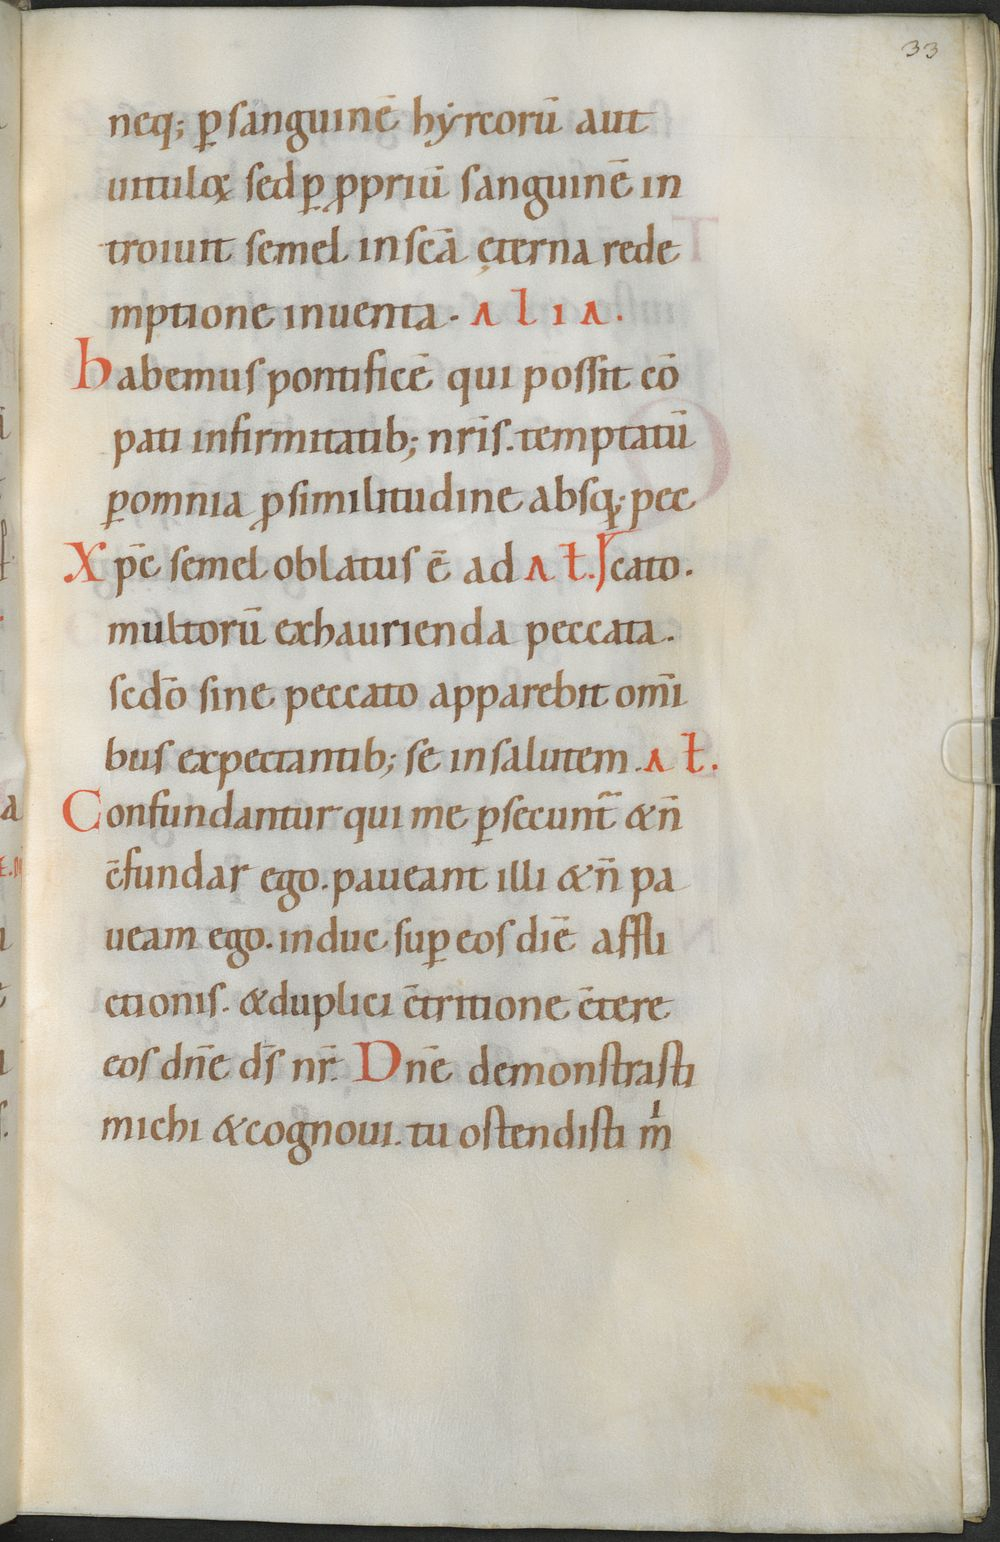 33
neq; ꝑ sanguinē hẏrcorū aut
uituloꝝ sed ꝑ ꝓpriū sanguinē in
troiuit semel in sc̄a ęterna rede
mptione inuenta. ALIA.
habemus pontificē qui possit cō
pati infirmitatib; nr̄is. temptatū
ꝑ omnia ꝓ similitudine absq; pec
Xp̄c semel oblatus ē ad Aƚ. cato.
multorū exhaurienda peccata.
sedo̅ sine peccato apparebit omī
bus expectantib; se in salutem. Aƚ.
Confundantur qui me ꝑsecunt̄ & n̄
c̄fundar ego. paueant illi & n̄ pa
ueam ego. induc suꝑ eos diē affli
ctionis. & duplici c̄tritione c̄tere
eos dn̄e ds̄ nr̄. Dn̄e demonstrasti
michi & cognoui. tu ostendisti mͥ